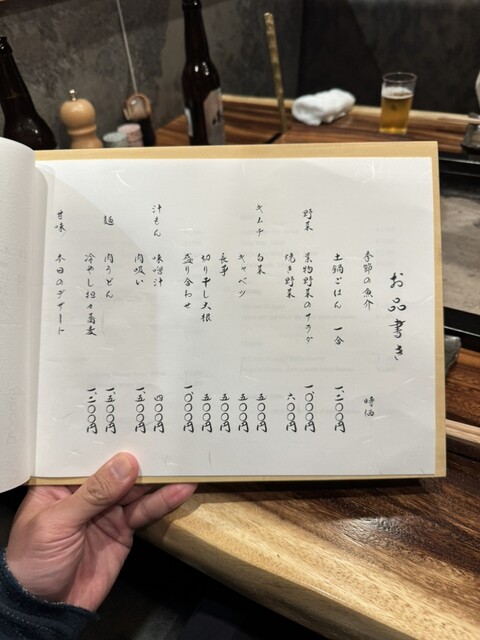 お品書き
季節の魚介 時価
土鍋ごはん 一合 一、二〇〇円
野菜 葉物野菜のサラダ 一、〇〇〇円
焼き野菜 六〇〇円
キムチ 白菜 五〇〇円
キャベツ 五〇〇円
長芋 五〇〇円
切り干し大根 五〇〇円
盛り合わせ 一、〇〇〇円
汁もん 味噌汁 四〇〇円
肉吸い 一、五〇〇円
麺 肉うどん 一、五〇〇円
冷やし担々蕎麦 一、二〇〇円
甘味 本日のデザート